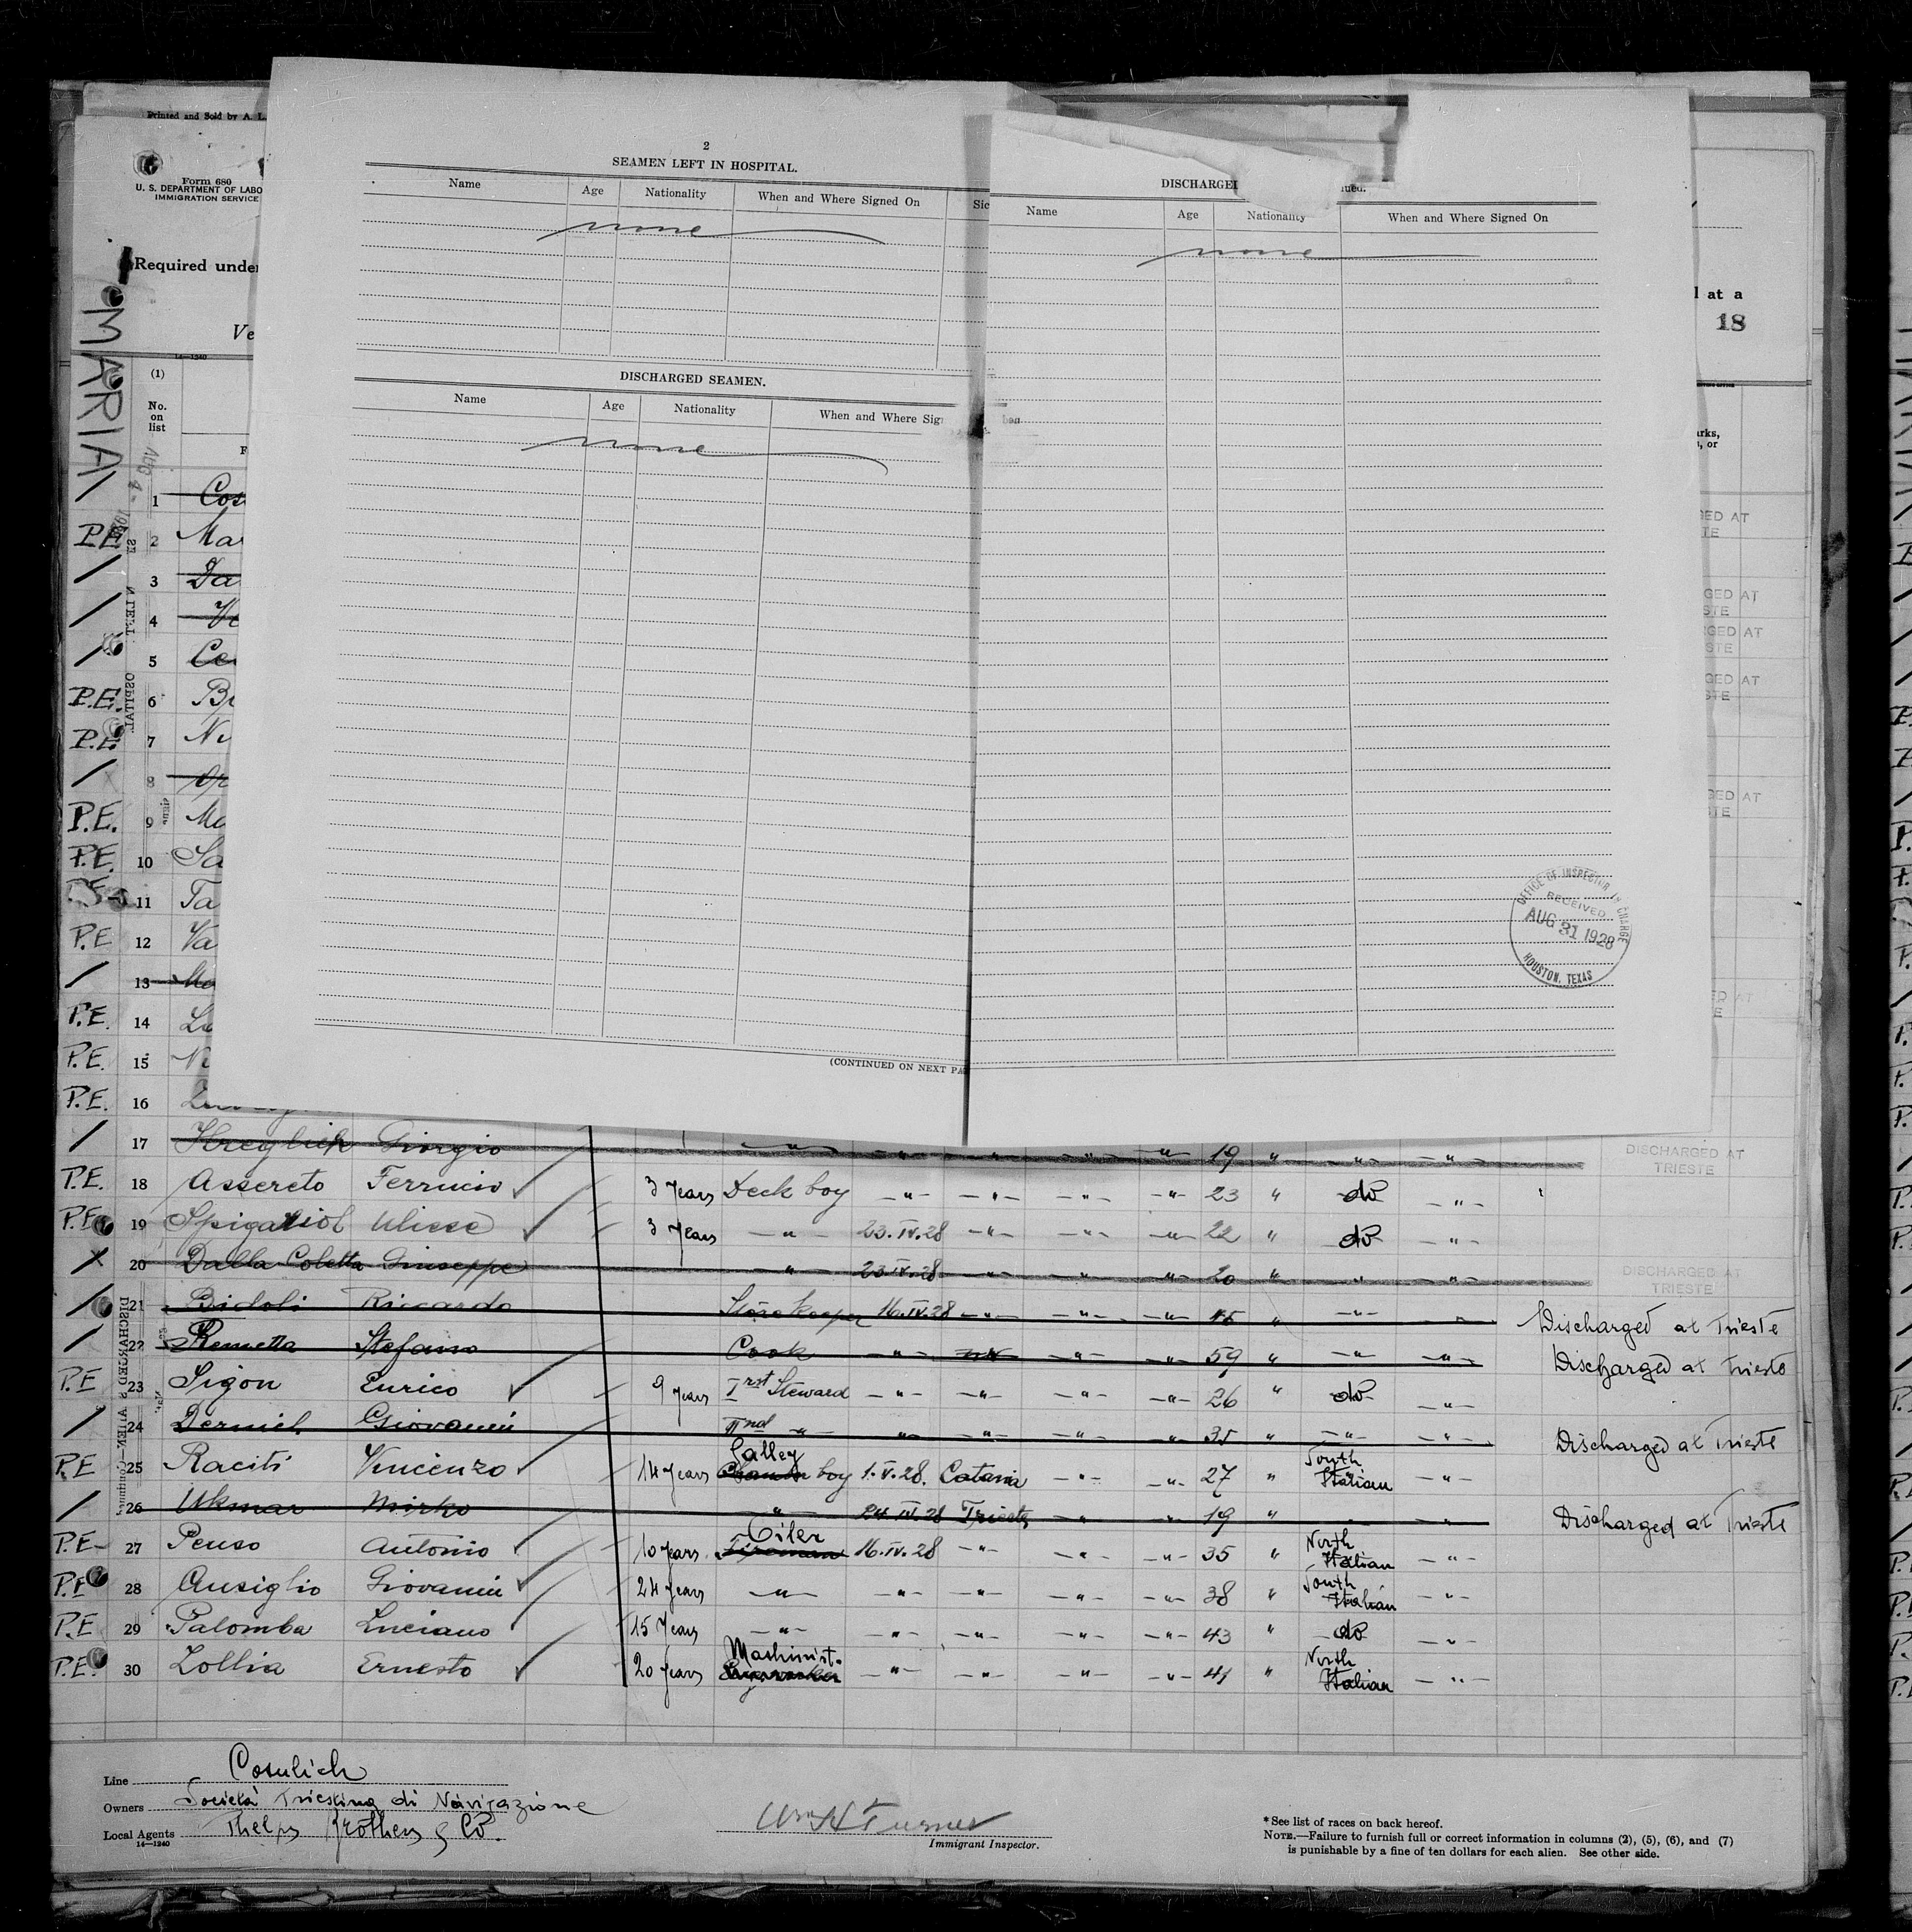 Printed and Sold by A. L.
Form 680
U. S. DEPARTMENT OF LABO
IMMIGRATION SERVICE
Required under
Ve
MARIA
14—1240
(1)
No.
on
list
F
2
SEAMEN LEFT IN HOSPITAL.
Name Age Nationality When and Where Signed On Sic
none
DISCHARGED SEAMEN.
Name Age Nationality When and Where Sig
none
(CONTINUED ON NEXT PA
DISCHARGE ued.
Name Age Nationality When and Where Signed On
none
OFFICE OF INSPECTOR IN CHARGE
RECEIVED
AUG 31 1928
HOUSTON, TEXAS
l at a
18
arks,
, or
1 Cos
P.E. 2 Mar
3 Da
4 Ve
5 Ce
P.E. 6 Br
P.E. 7 Nu
8
P.E. 9 Ma
P.E. 10 Sa
P.E. 11 Ta
P.E 12 Va
13 Ma
P.E. 14 Lu
P.E. 15 N
P.E. 16
17 Giorgio 19 DISCHARGED AT TRIESTE
P.E. 18 Assereto Ferruccio 3 years Deck boy —"— —"— —"— —"— 23 " do —"—
P.E. 19 Ulisse 3 years —"— 23.IV.28 —"— —"— —"— 22 " do —"—
20 Dalla Coletta Giuseppe —"— 23.IV.28 —"— —"— —"— 20 " " —"— DISCHARGED AT TRIESTE
21 Bidoli Riccardo Storekeeper 16.IV.28 —"— —"— —"— 45 " —"— " Discharged at Trieste
22 Remetta Stefano Cook —"— —"— —"— —"— 59 " —"— —"— Discharged at Trieste
P.E 23 Sigon Enrico 9 years Irst Steward —"— —"— —"— —"— 26 " do —"—
24 Giovanni IInd —"— —"— —"— —"— —"— 35 " —"— —"— Discharged at Trieste
Galley South
P.E 25 Raciti Vincenzo 14 years boy 1.V.28. Catania —"— —"— 27 " Italian —"—
26 Ukmar Mirko —"— 24.IV.28 Trieste —"— —"— 19 " Discharged at Trieste
Oiler North
P.E 27 Penso Antonio 10 years Fireman 16.IV.28 —"— —"— —"— 35 " Italian —"—
South
P.E 28 Ausiglio Giovanni 24 years —"— —"— —"— —"— —"— 38 " Italian —"—
P.E 29 Palomba Luciano 15 years —"— —"— —"— —"— —"— 43 " do —"—
Mashinist. North
P.E. 30 Zollia Ernesto 20 years —"— —"— —"— —"— 41 " Italian —"—
Line Cosulich
Owners Società Triestina di Navigazione
Local Agents Phelps Brothers & Co.
14—1240
Wm H Turner
Immigrant Inspector.
* See list of races on back hereof.
NOTE.—Failure to furnish full or correct information in columns (2), (5), (6), and (7)
is punishable by a fine of ten dollars for each alien. See other side.